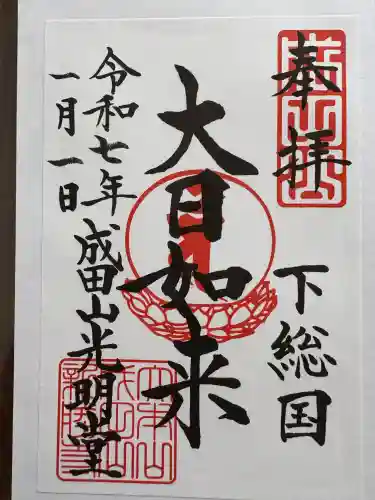 奉拝
下総国
大日如来
令和七年
一月一日
成田山光明堂